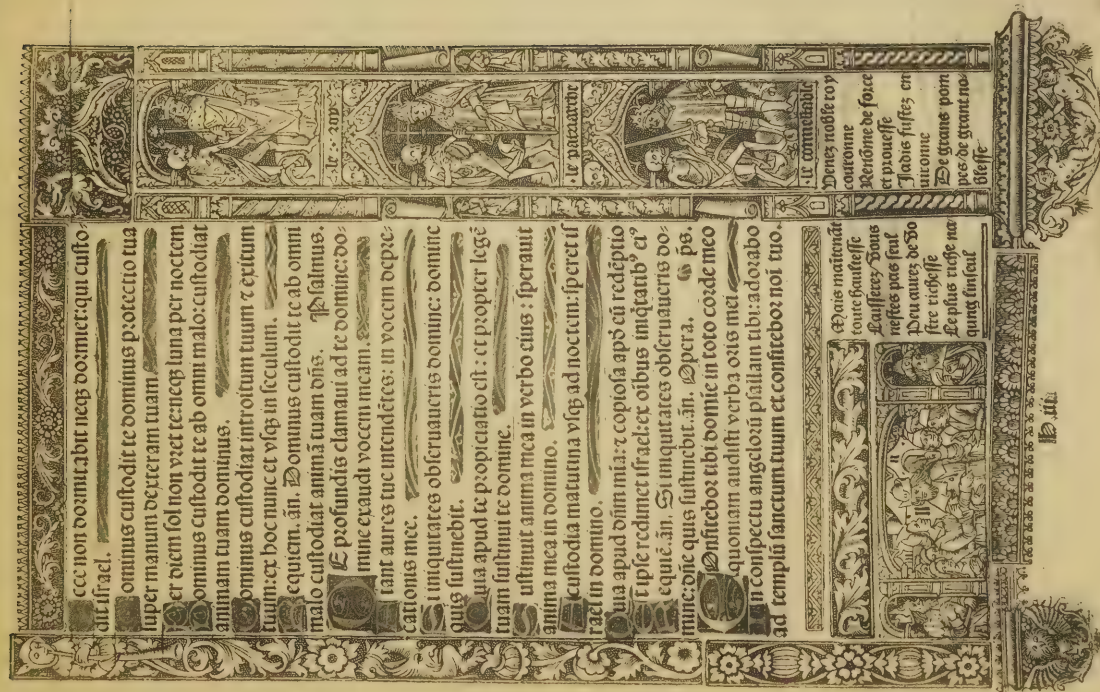 cce non dormitabit neqȝ dormiet: qui custo-
dit israel.
ominus custodit te dominus protectio tua
super manum dexteram tuam.
er diem sol non vret te neqȝ luna per noctem
ominus custodit te ab omni malo: custodiat
animam tuam dominus.
ominus custodiat introitum tuum ⁊ exitum
tuum: ex hoc nunc et vsqȝ in seculum.
equiem. añ. Dominus custodit te ab omni
malo custodiat animã tuam dñs. Psalmus.
E profundis clamaui ad te domine: do-
mine exaudi vocem meam.
iant aures tue intendẽtes: in vocem depre-
cationis mee.
S i iniquitates obseruaueris domine: domine
quis sustinebit.
uia apud te propiciatio est: et propter legẽ
tuam sustinui te domine.
S ustinuit anima mea in verbo eius: sperauit
anima mea in domino.
custodia matutina vsqȝ ad noctem: speret is
rael in domino.
uia apud dñm mia: ⁊ copiosa apđ eũ redẽptio
t ipse redimet israel: ex oibus iniqtatibꝰ eiꝰ
equẽ. añ. Si iniquitates obseruaueris do-
mine: dñe quis sustinebit. añ. Opera. ps.
C Onfitebor tibi domie in toto corde meo
quoniam audisti verba oris mei
n conspectu angelorũ psallam tibi: adorabo
ad templũ sanctum tuum et confitebor noi tuo.
le roy
le patriarche
le connestable
Venez noble roy
couronne
Renõme de force
et prouesse
Jardis fustez en
uironne
De grans pom
pes de grant no
blesse
Mais maitenãt
toute haultesse
Laisserez vous
nestes pas seul
Peu aurez de vo
stre richesse
Le plus riche na
qung linseul